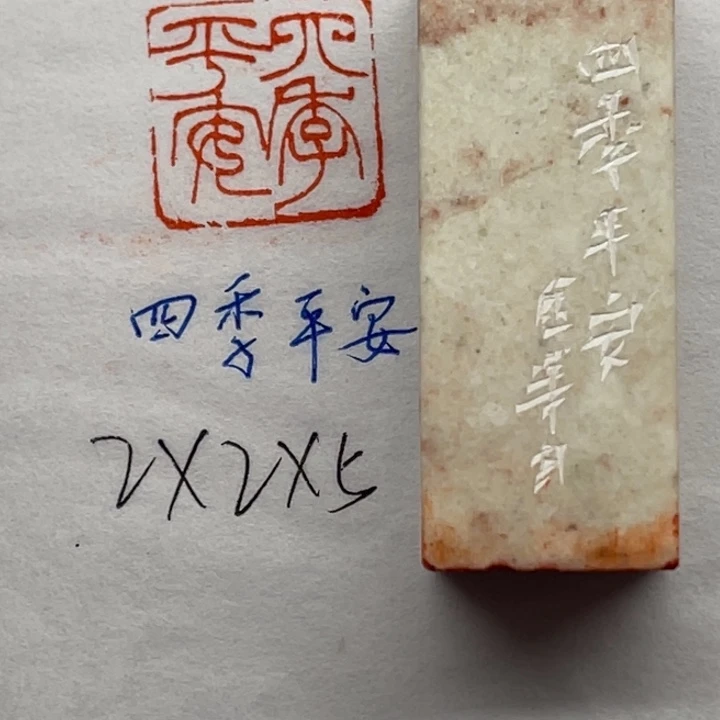 四季平安
四季平安
2X2X5
四季平安